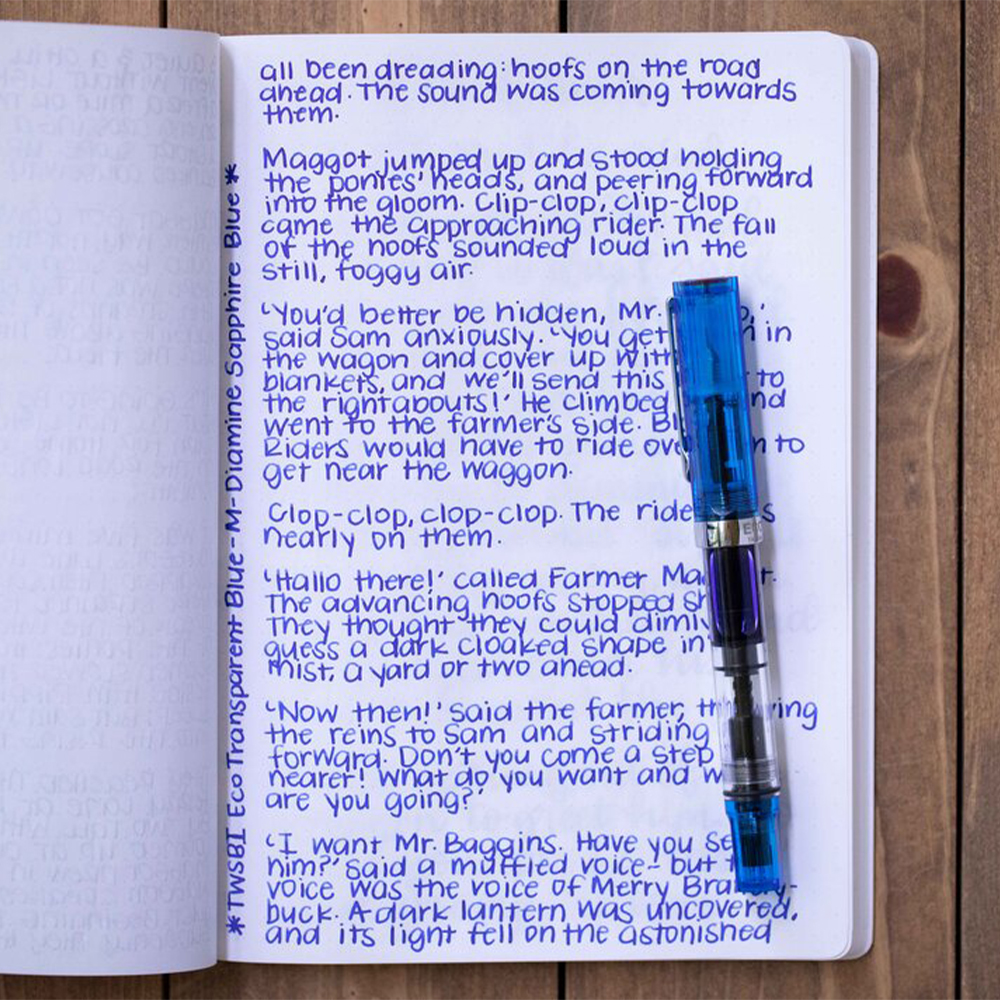 all been dreading: hoofs on the road
ahead. The sound was coming towards
them.
Maggot jumped up and stood holding
the ponies' heads, and peering forward
into the gloom. Clip-clop, clip-clop
came the approaching rider. The fall
of the hoofs sounded loud in the
still, foggy air.
'You'd better be hidden, Mr.
said Sam anxiously. 'You get in
the wagon and cover up with
blankets, and we'll send this to
the rightabouts!' He climbed
went to the farmer's side.
Riders would have to ride to
get near the waggon.
Clop-clop, clop-clop. The
nearly on them.
'Hallo there!' called Farmer
The advancing hoofs stopped
They thought they could
guess a dark cloaked shape in
mist, a yard or two ahead.
'Now then!' said the farmer,
the reins to Sam and striding
forward. Don't you come a step
nearer! What do you want and
are you going?'
'I want Mr. Baggins. Have you
him?' said a muffled voice- but
voice was the voice of Merry Brandy-
buck. A dark lantern was uncovered,
and its light fell on the astonished
*TWSBI Eco Transparent Blue-M-Diamine Sapphire Blue*